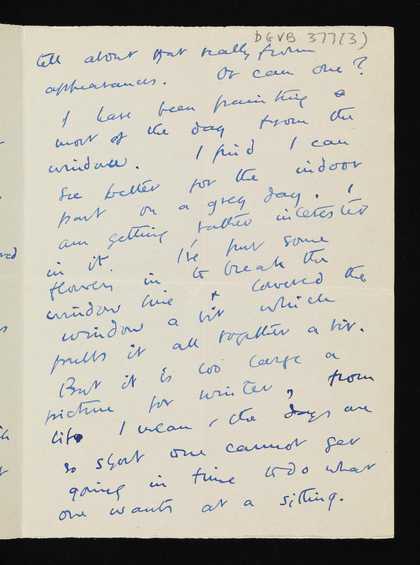 DGVB 377(3)
tell about that really from
appearances. Or can one?
I have been painting a
most of the day from the
window. I find I can
see better for the indoor
part on a grey day. I
am getting rather interested
in it. I've put some
flowers in to break the
window line & covered the
window a bit which
pulls it all together a bit.
But it is too large a
picture for winter, from
life I mean, the days are
so short one cannot get
going in time to do what
one wants at a sitting.